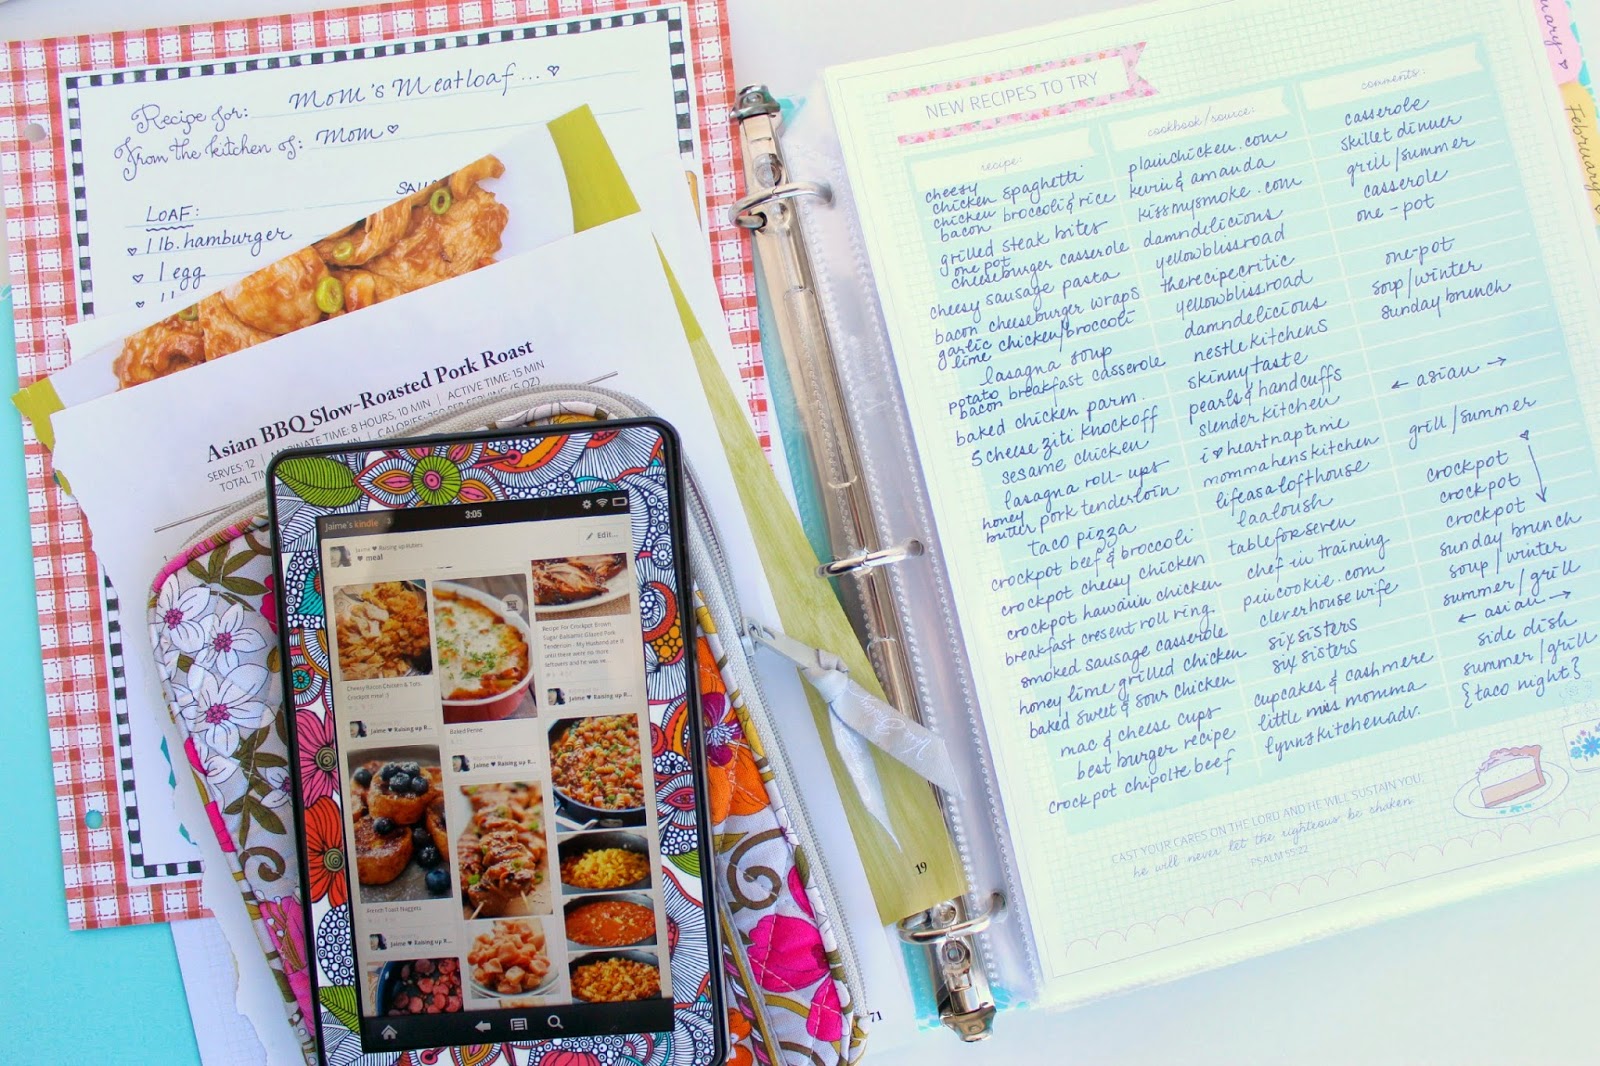 Mom's Meatloaf... ♡
Recipe for:
From the kitchen of: Mom ♡
LOAF:
♡ 1 lb. hamburger
♡ 1 egg
Asian BBQ Slow-Roasted Pork Roast
SERVES: 12 | MARINATE TIME: 8 HOURS, 10 MIN | ACTIVE TIME: 15 MIN
TOTAL TIME
CALORIES: 250 PER SERVING (5 OZ)
Jaime's kindle
3:05
Jaime ♥ Raising up Rubies
♥ meal
Edit...
Cheesy Bacon Chicken & Tots.
Crockpot meal :)
Jaime ♥ Raising up R...
French Toast Nuggets
Jaime ♥ Raising up R...
Baked Penne
Jaime ♥ Raising up R...
Recipe For Crockpot Brown
Sugar Balsamic Glazed Pork
Tenderloin - My Husband ate it
until there were no more
leftovers and he was ve...
Jaime ♥ Raising up R...
19
71
NEW RECIPES TO TRY
recipe:
cookbook/source:
comments:
cheesy chicken spaghetti
plainchicken.com
casserole
chicken broccoli & rice
kevin & amanda
skillet dinner
bacon grilled steak bites
kissmysmoke.com
grill/summer
one pot cheeseburger casserole
damndelicious
casserole
cheesy sausage pasta
yellowblissroad
one-pot
bacon cheeseburger wraps
therecipecritic
garlic lime chicken/broccoli
yellowblissroad
one-pot
lasagna soup
damndelicious
soup/winter
potato bacon breakfast casserole
nestlekitchens
sunday brunch
baked chicken parm.
skinnytaste
5 cheese ziti knockoff
pearls & handcuffs
sesame chicken
slenderkitchen
← asian →
lasagna roll-ups
i ♥ heart naptime
honey butter pork tenderloin
mommahenskitchen
grill/summer
taco pizza
lifeasalofthouse
crockpot beef & broccoli
laaloosh
crockpot
crockpot cheesy chicken
tableforseven
crockpot
crockpot hawaiin chicken
chef in training
crockpot
breakfast cresent roll ring
pincookie.com
sunday brunch
smoked sausage casserole
cleverhousewife
soup/winter
honey lime grilled chicken
sixsisters
summer/grill
baked sweet & sour chicken
six sisters
← asian →
mac & cheese cups
cupcakes & cashmere
side dish
best burger recipe
little miss momma
summer/grill
crockpot chipolte beef
lynnskitchenadv.
{taco night}
CAST YOUR CARES ON THE LORD AND HE WILL SUSTAIN YOU
he will never let the righteous be shaken
PSALM 55:22
February ♡